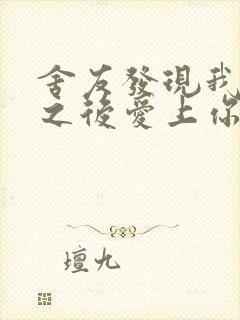 舍友發現我
之後愛上你
壇九